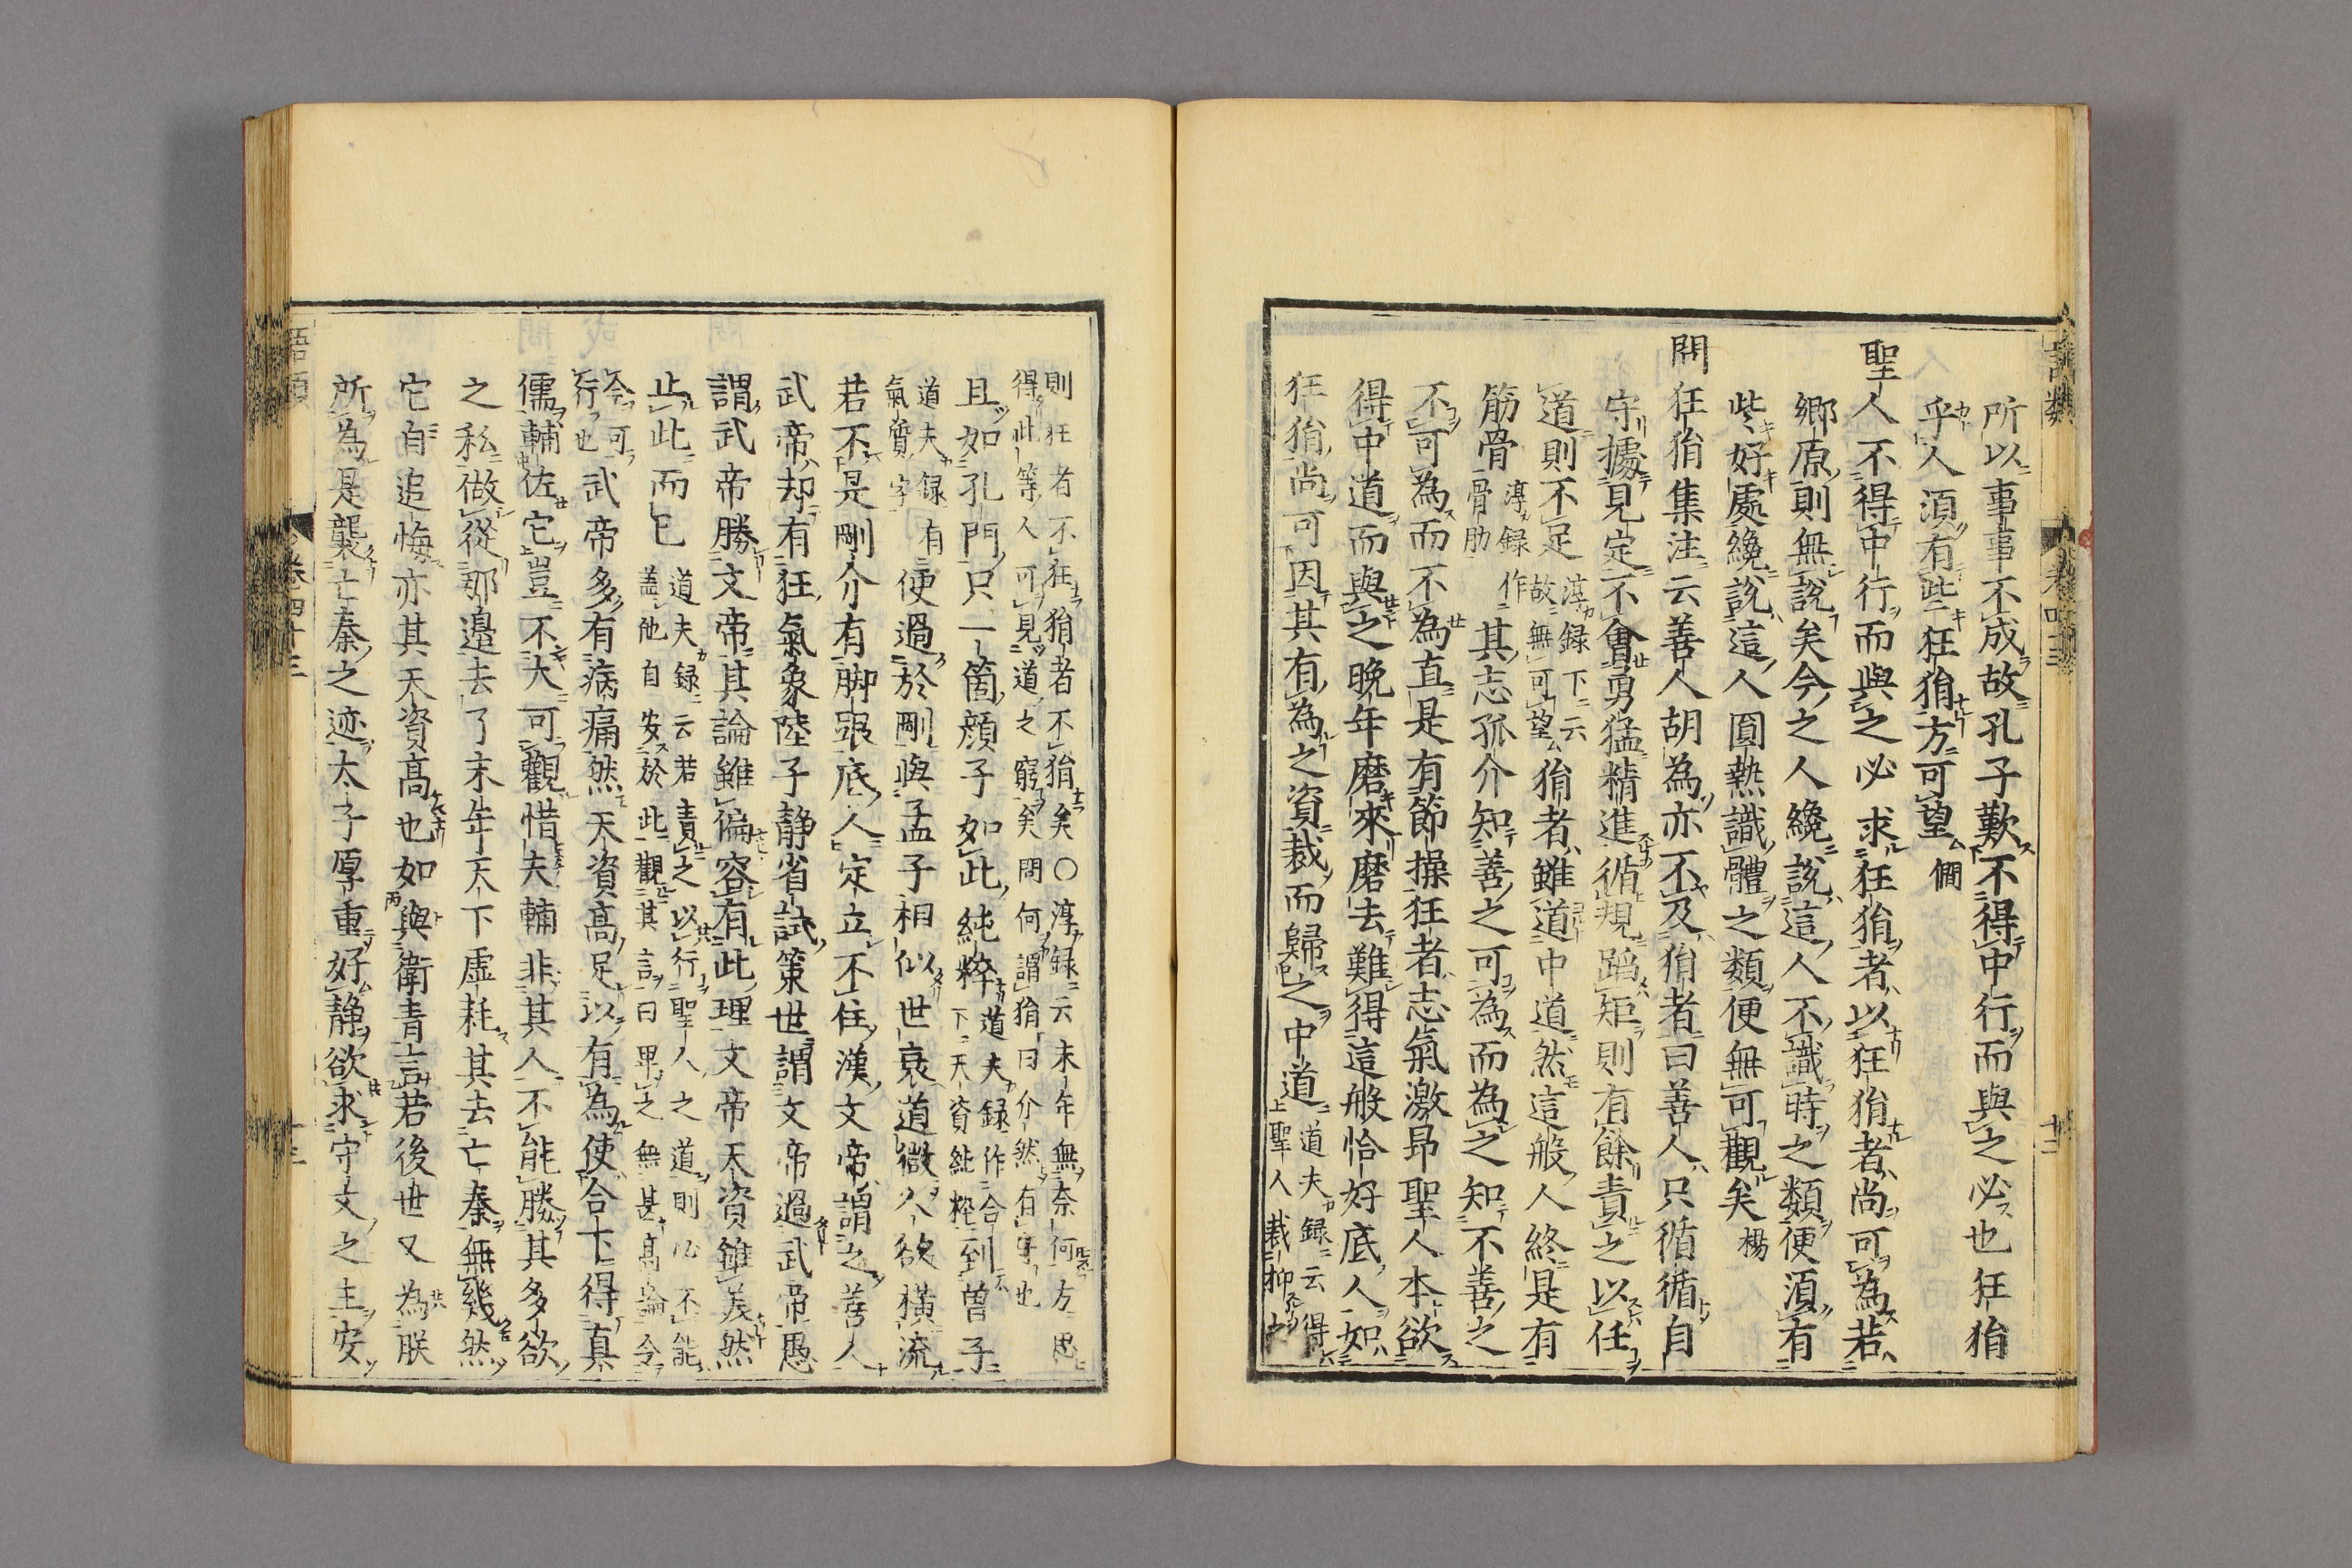 語類
卷四十三
十二
所以事事不成故孔子歎不得中行而與之必也狂狷
乎人須有些狂狷方可望 僩
聖人不得中行而與之必求狂狷者以狂狷者尚可為若
鄉原則無說矣今之人纔說這人不識時之類便須有
些好處纔說這人圓熟識體之類便無可觀矣 楊
問狂狷集注云善人胡為亦不及狷者曰善人只循循自
守據見定不會勇猛精進循規蹈矩則有餘責之以任
道則不足 淳錄下云故無可望 狷者雖道中道然這般人終是有
筋骨 淳錄作骨肋 其志孤介知善之可為而為之知不善之
不可為而不為直是有節操狂者志氣激昂聖人本欲
得中道而與之晚年磨來磨去難得這般恰好底人如
狂狷尚可因其有為之資裁而歸之中道 道夫錄云得上聖人裁抑之
則狂者不狂狷者不狷矣○淳錄云末年無奈何方思得此等人可見道之窮矣問何謂狷曰介然有守也
且如孔門只一箇顏子如此純粹 道夫錄作合下天資純粹 到曾子
道夫錄有氣質字 便過於剛與孟子相似世衰道微人欲橫流
若不是剛介有腳跟底人定立不住漢文帝謂之善人
武帝却有狂氣象陸子靜省試策世謂文帝過武帝愚
謂武帝勝文帝其論雖偏容有此理文帝天資雖美然
止此而已 道夫錄云若責之以行聖人之道則必不能蓋他自安於此觀其言曰卑之無甚高論令
今可行也 武帝多有病痛然天資高足以有為使合下得真
儒輔佐它豈不大可觀惜夫輔非其人不能勝其多欲
之私做從那邊去了末年天下虛耗其去亡秦無幾然
它自追悔亦其天資高也如與衛青言若後世又為朕
所為是襲亡秦之迹太子厚重好靜欲求守文之主安
語類
卷四十三
十三